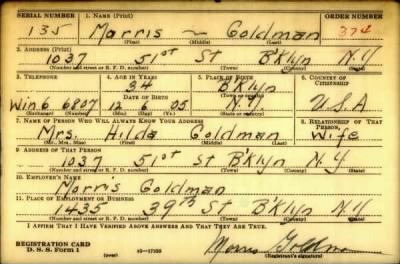 SERIAL NUMBER 1. NAME (Print) ORDER NUMBER
135 Morris ~ Goldman 374
(First) (Middle) (Last)
2. ADDRESS (Print)
1037 51st St B'klyn N.Y
(Number and street or R. F. D. number) (Town) (County) (State)
3. TELEPHONE 4. AGE IN YEARS 5. PLACE OF BIRTH 6. COUNTRY OF CITIZENSHIP
34 B'klyn
DATE OF BIRTH (Town or county)
Win 6 6807 12 05 N.Y. U.S.A
(Exchange) (Number) (Mo.) (Day) (Yr.) (State or country)
7. NAME OF PERSON WHO WILL ALWAYS KNOW YOUR ADDRESS 8. RELATIONSHIP OF THAT PERSON
Mrs. Hilda Goldman Wife
(Mr., Mrs., Miss) (First) (Middle) (Last)
9. ADDRESS OF THAT PERSON
1037 51st St B'klyn N.Y
(Number and street or R. F. D. number) (Town) (County) (State)
10. EMPLOYER'S NAME
Morris Goldman
11. PLACE OF EMPLOYMENT OR BUSINESS
1435 39th St B'klyn N.Y
(Number and street or R. F. D. number) (Town) (County) (State)
I AFFIRM THAT I HAVE VERIFIED ABOVE ANSWERS AND THAT THEY ARE TRUE.
REGISTRATION CARD
D. S. S. Form 1 (over) Morris Goldman
(Registrant's signature)